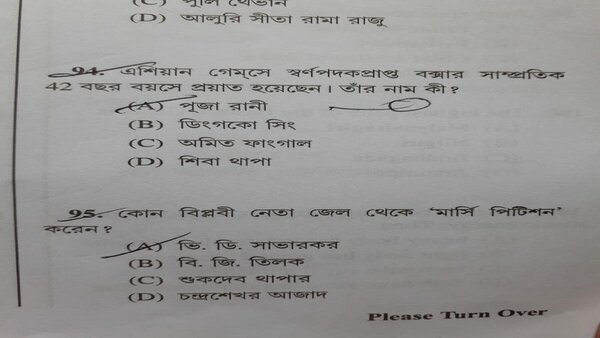 (C) পুলি থেভান
(D) আলুরি সীতা রামা রাজু
94. এশিয়ান গেম্‌সে স্বর্ণপদকপ্রাপ্ত বক্সার সাম্প্রতিক
42 বছর বয়সে প্রয়াত হয়েছেন। তাঁর নাম কী?
(A) পূজা রানী
(B) ডিংগকো সিং
(C) অমিত ফাংগাল
(D) শিবা থাপা
95. কোন বিপ্লবী নেতা জেল থেকে ‘মার্সি পিটিশন’
করেন?
(A) ভি. ডি. সাভারকর
(B) বি. জি. তিলক
(C) শুকদেব থাপার
(D) চন্দ্রশেখর আজাদ
Please Turn Over